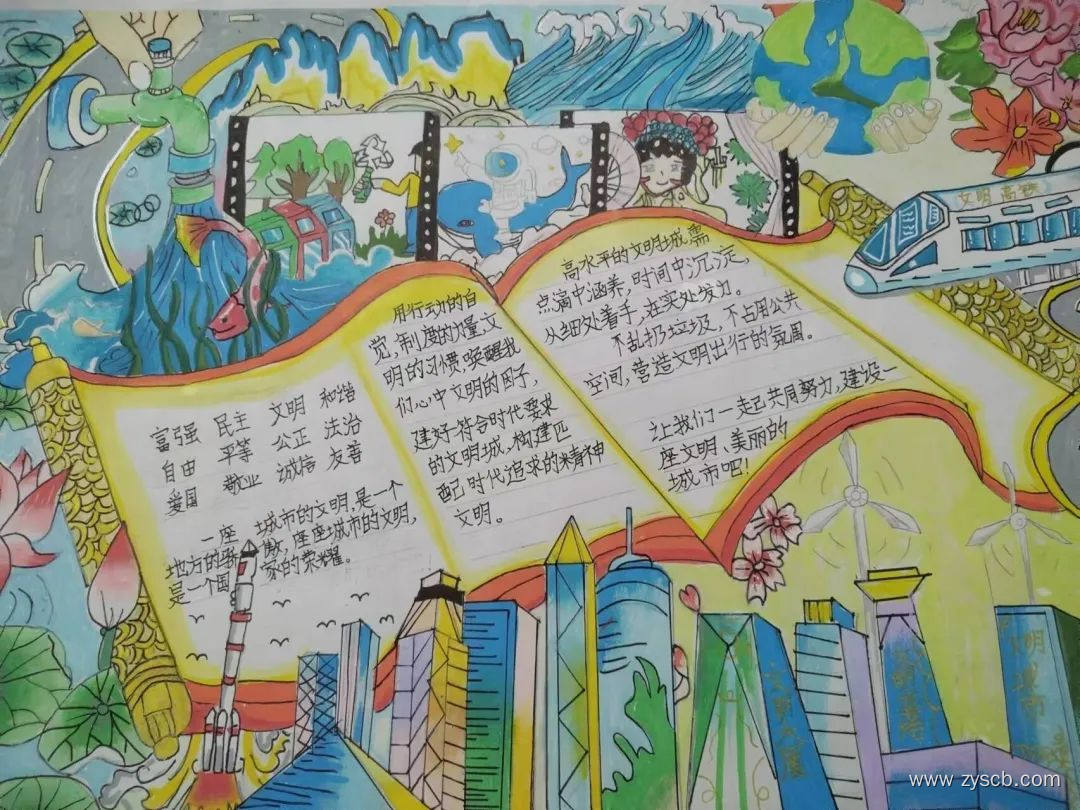 富强 民主 文明 和谐
自由 平等 公正 法治
爱国 敬业 诚信 友善
一座城市的文明,是一个
地方的骄傲,座座城市的文明,
是一个国家的荣耀。
用行动的自
觉,制度的力量,文
明的习惯,唤醒我
们心中文明的因子,
建好一符合时代要求
的文明城,构建匹
配时代追求的精神
文明。
高水平的文明城,需
点滴中涵养,时间中沉淀,
从细处着手,在实处发力。
不乱扔垃圾,不占用公共
空间,营造文明出行的氛围。
让我们一起共同努力,建设一
座文明、美丽的
城市吧!
文明高铁
明城市
www.zyscb.com